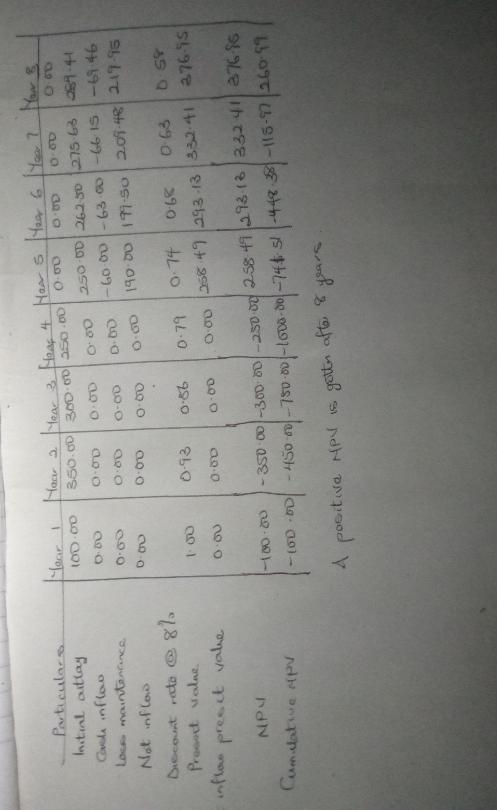 Particulars | Year 1 | Year 2 | Year 3 | Year 4 | Year 5 | Year 6 | Year 7 | Year 8
Initial outlay | 100.00 | 350.00 | 300.00 | 250.00 | 0.00 | 0.00 | 0.00 | 0.00
Cash inflow | 0.00 | 0.00 | 0.00 | 0.00 | 250.00 | 262.50 | 275.63 | 289.41
Less maintenance | 0.00 | 0.00 | 0.00 | 0.00 | -60.00 | -63.00 | -66.15 | -69.46
Net inflow | 0.00 | 0.00 | 0.00 | 0.00 | 190.00 | 199.50 | 209.48 | 219.95
Discount rate @ 8%
Present value | 1.00 | 0.93 | 0.86 | 0.79 | 0.74 | 0.68 | 0.63 | 0.58
inflow present value | 0.00 | 0.00 | 0.00 | 0.00 | 258.49 | 293.13 | 332.41 | 376.95
NPV | -100.00 | -350.00 | -300.00 | -250.00 | 258.49 | 293.13 | 332.41 | 376.95
Cumulative NPV | -100.00 | -450.00 | -750.00 | -1000.00 | -741.51 | -448.38 | -115.97 | 260.99
A positive NPV is gotten after 8 years.